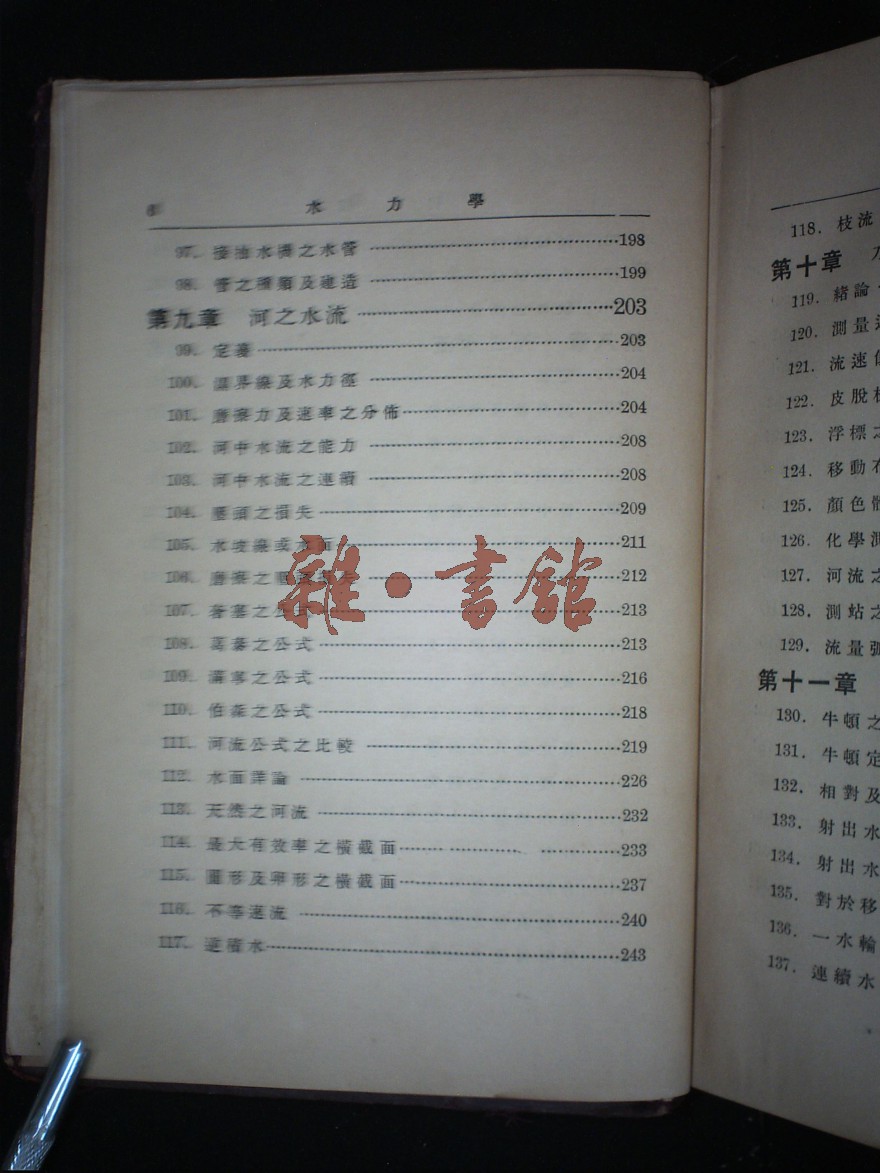 水 力 學
97. 之水管 198
98. 管之種類及建造 199
第九章 河之水流 203
99. 定義 203
100. 界線及水力徑 204
101. 磨擦力及速率之分佈 204
102. 河中水流之能力 208
103. 河中水流之連續 208
104. 壓頭之損失 209
105. 水坡線或水面 211
106. 磨擦之 212
107. 之公式 213
108. 之公式 213
109. 滿寧之公式 216
110. 伯森之公式 218
111. 河流公式之比較 219
112. 水面詳論 226
113. 天然之河流 232
114. 最大有效率之橫截面 233
115. 圓形及卵形之橫截面 237
116. 不等速流 240
117. 逆積水 243
雜·書館
118. 枝流
第十章
119. 緒論
120. 測量
121. 流速
122. 皮脫
123. 浮標之
124. 移動
125. 顏色
126. 化學測
127. 河流之
128. 測站之
129. 流量
第十一章
130. 牛頓之
131. 牛頓定
132. 相對及
133. 射出水
134. 射出水
135. 對於移
136. 一水輪
137. 連續水